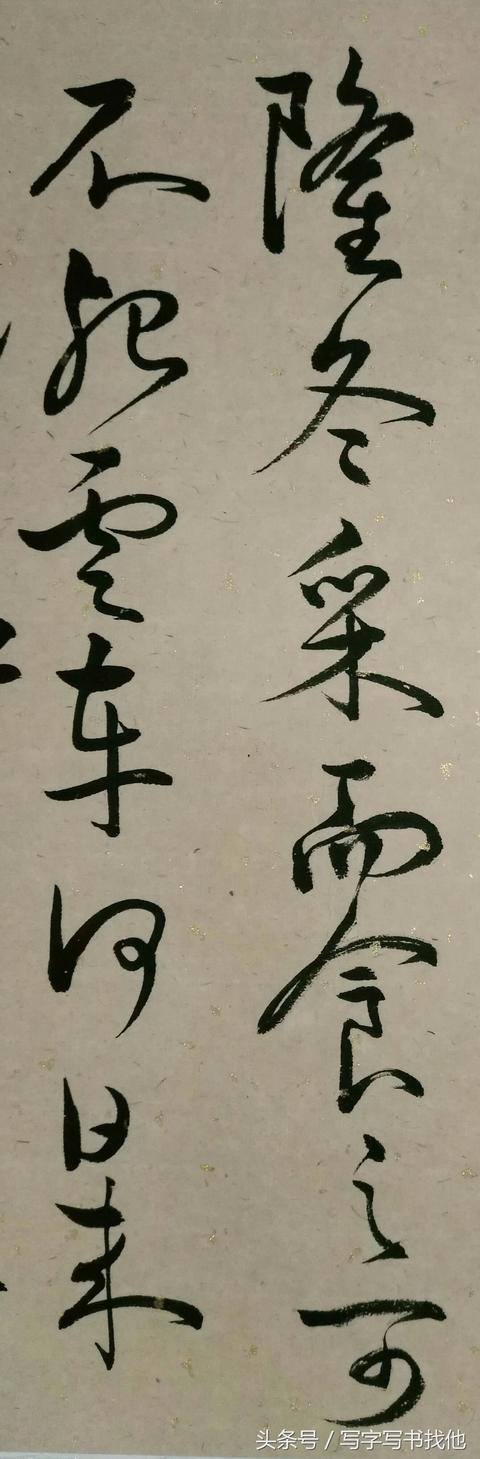 隆冬采而食之可
不雲车何日来
头条号 / 写字写书找他